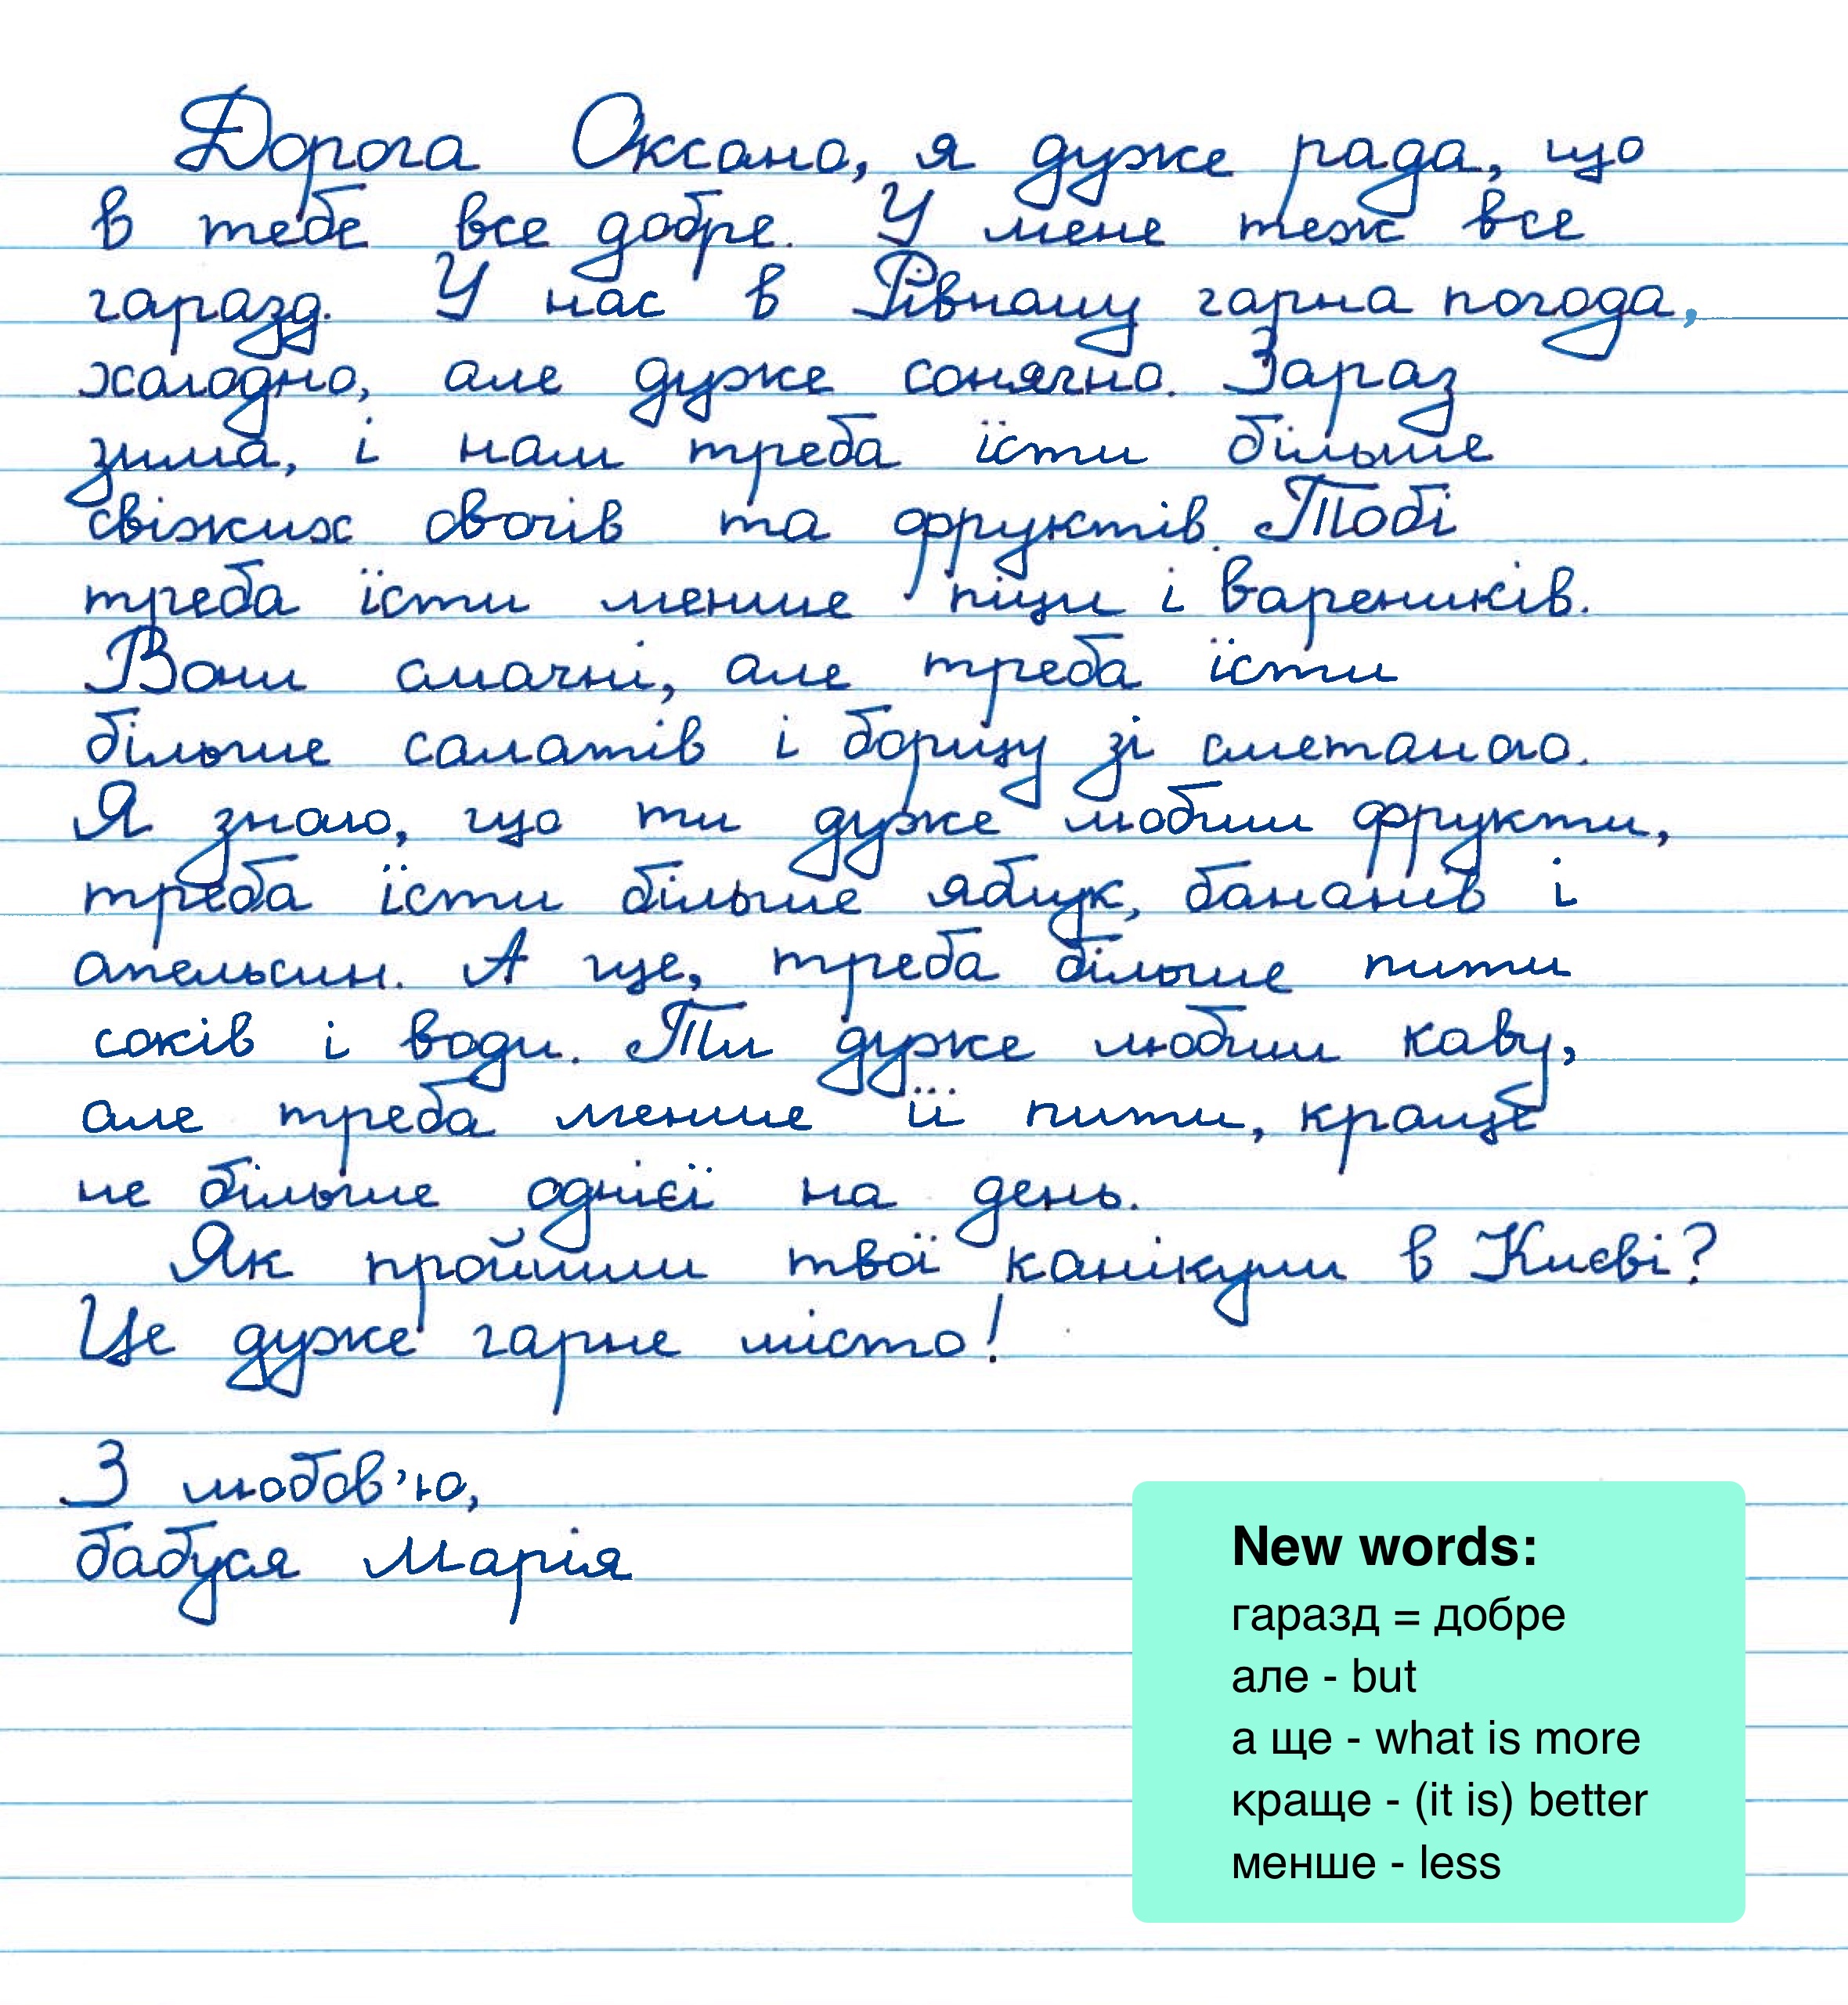 Дорога Оксано, я дуже рада, що
в тебе все добре. У мене теж все
гаразд. У нас в Рівному гарна погода,
холодно, але дуже сонячно. Зараз
зима, і нам треба їсти більше
свіжих овочів та фруктів. Тобі
треба їсти менше піци і вареників.
Вони смачні, але треба їсти
більше салатів і борщу зі сметаною.
Я знаю, що ти дуже любиш фрукти,
треба їсти більше яблук, бананів і
апельсин. А ще, треба більше пити
соків і води. Ти дуже любиш каву,
але треба менше її пити, краще
не більше однієї на день.
Як пройшли твої канікули в Києві?
Це дуже гарне місто!
З любов'ю,
бабуся Марія
New words:
гаразд = добре
але - but
а ще - what is more
краще - (it is) better
менше - less